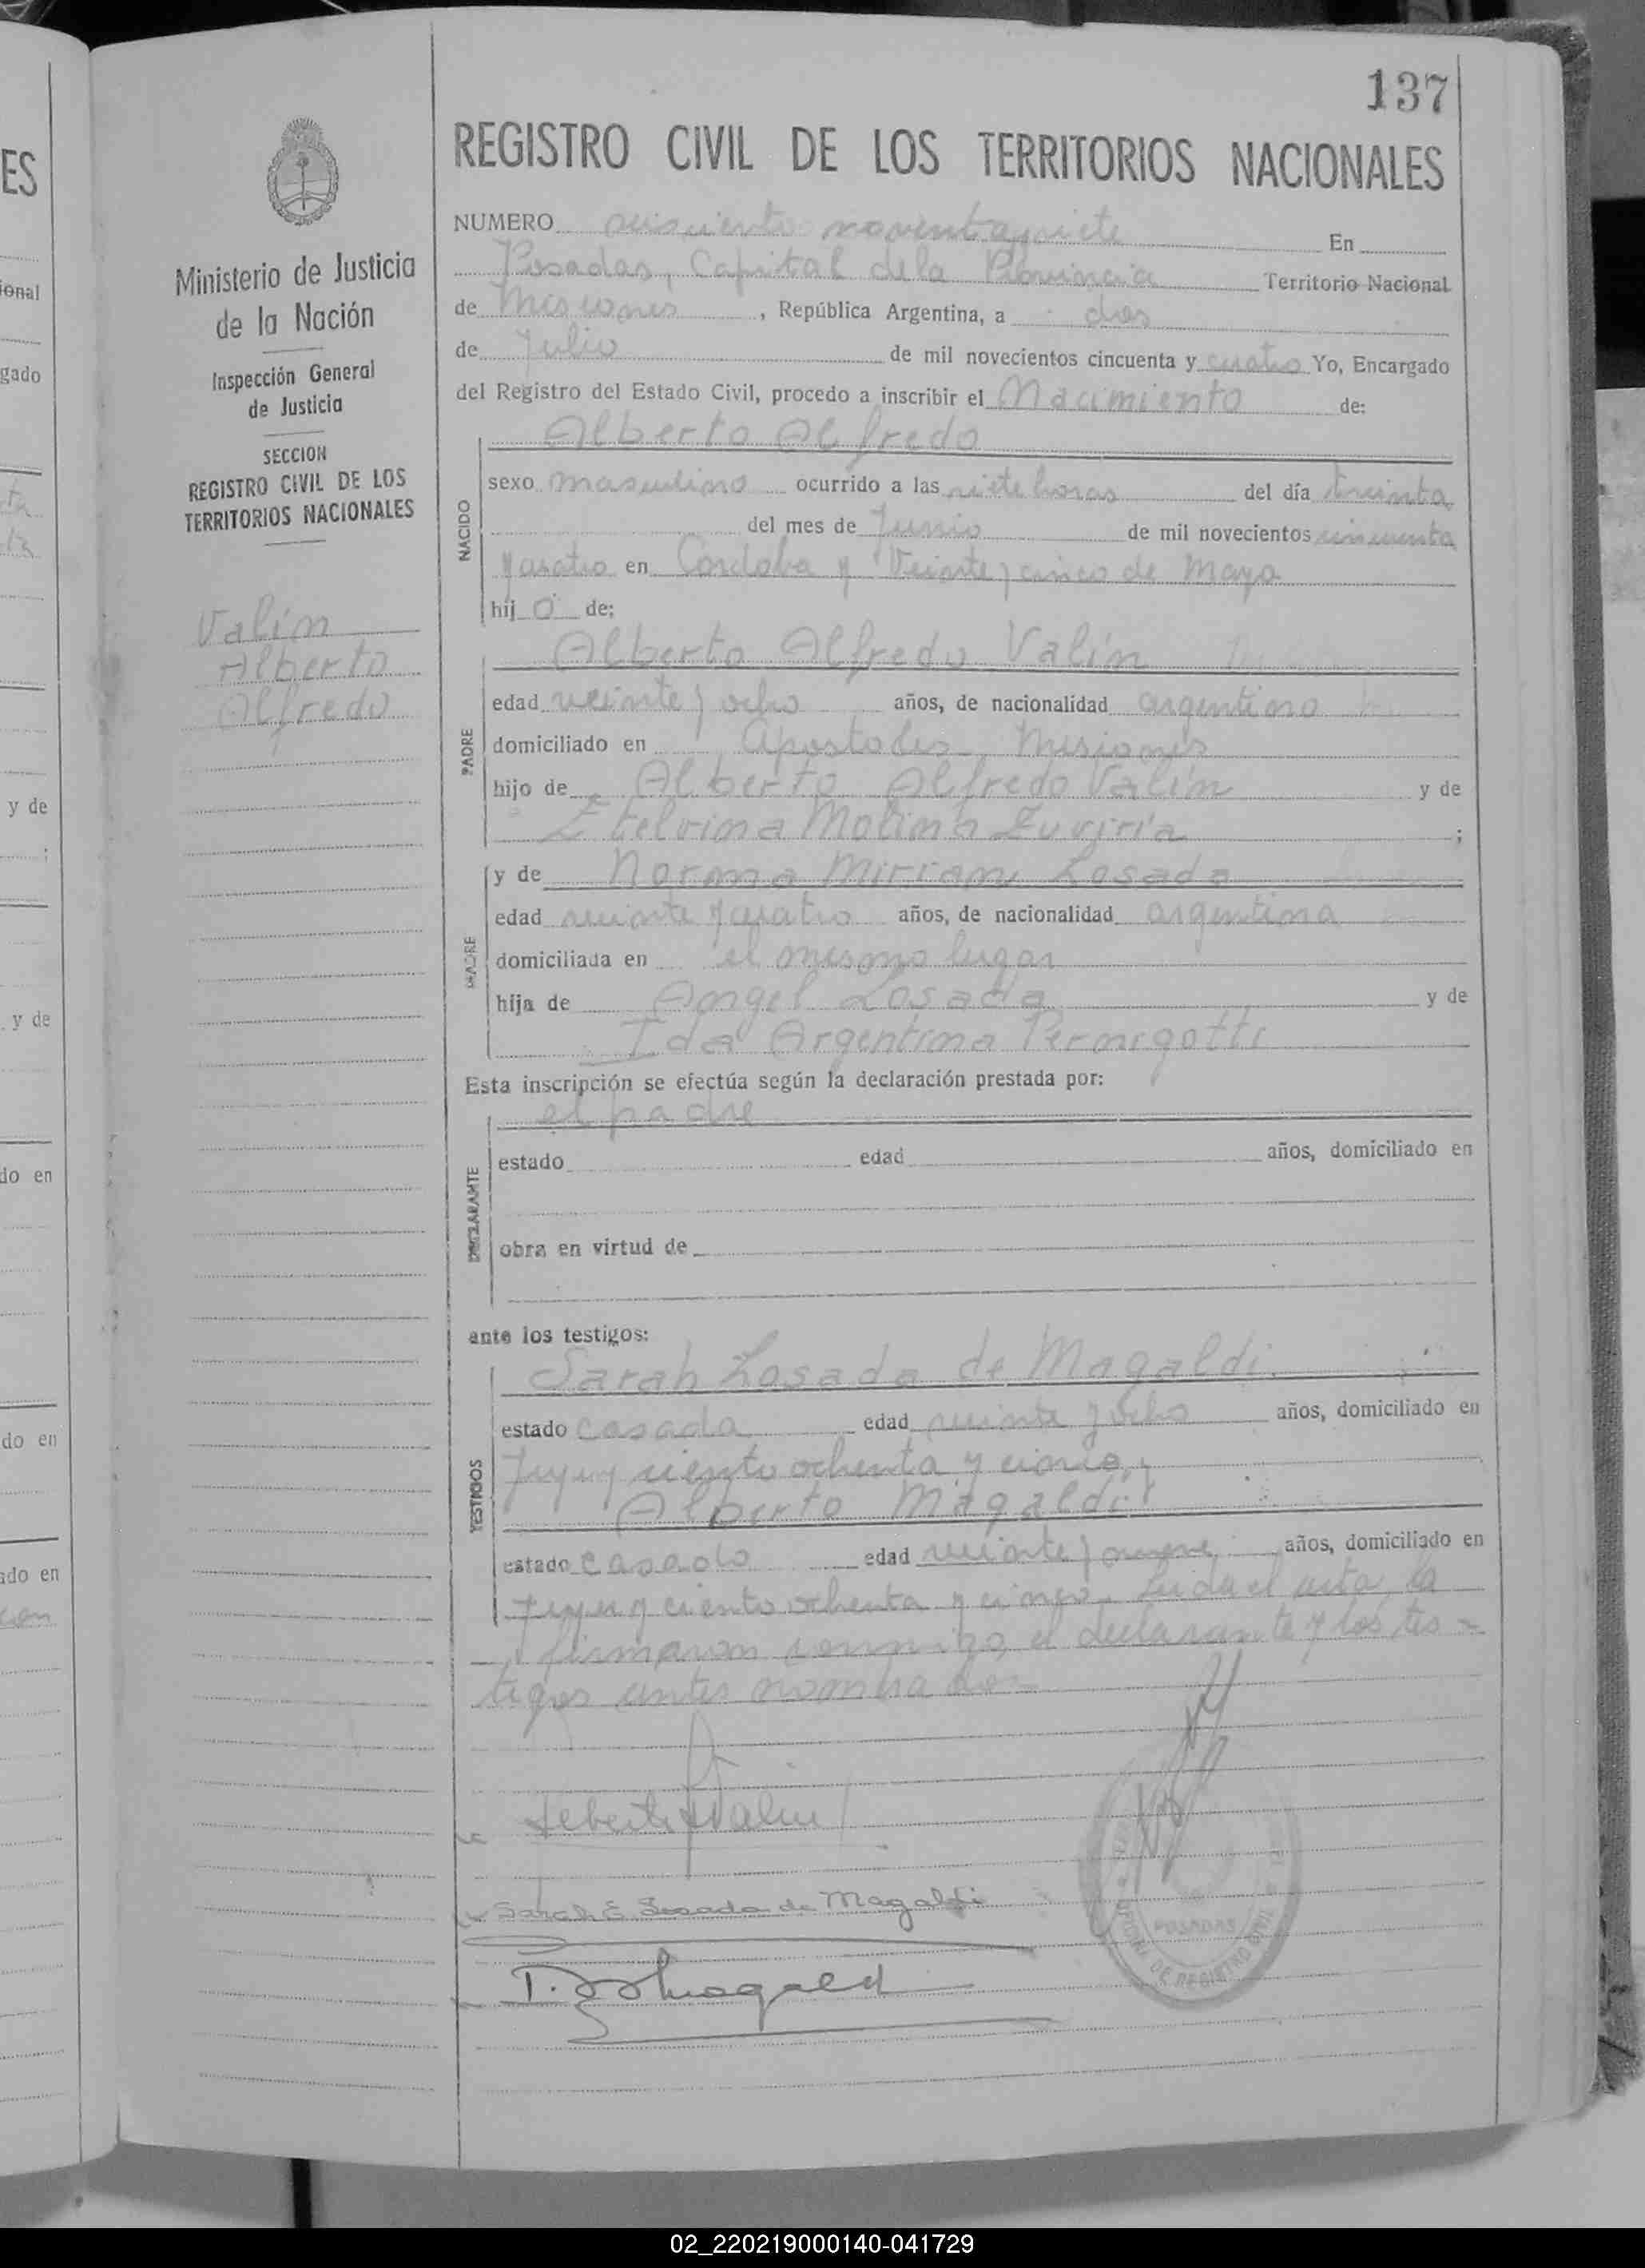 137
REGISTRO CIVIL DE LOS TERRITORIOS NACIONALES
Ministerio de Justicia
de la Nación
Inspección General
de Justicia
SECCION
REGISTRO CIVIL DE LOS
TERRITORIOS NACIONALES
Valín
Alberto
Alfredo
NUMERO seisciento noventa y siete En
Posadas, Capital de la Provincia Territorio Nacional
de Misiones, República Argentina, a dos
de Julio de mil novecientos cincuenta y cuatro Yo, Encargado
del Registro del Estado Civil, procedo a inscribir el Nacimiento de:
NACIDO
Alberto Alfredo
sexo masculino ocurrido a las siete horas del día treinta
del mes de Junio de mil novecientos cincuenta
y cuatro en Cordoba y Veinte y cinco de Mayo
hijo de:
PADRE
Alberto Alfredo Valín
edad veinte y ocho años, de nacionalidad argentino
domiciliado en Apostoles Misiones
hijo de Alberto Alfredo Valín y de
Etelvina Molina Zuviría ;
MADRE
y de Norma Mirriam Losada
edad veinte y cuatro años, de nacionalidad argentina
domiciliada en el mismo lugar
hija de Angel Losada y de
Ida Argentina Pernigotti
Esta inscripción se efectúa según la declaración prestada por:
DECLARANTE
el padre
estado edad años, domiciliado en
obra en virtud de
ante los testigos:
TESTIGOS
Sarah Losada de Magaldi.
estado casada edad veinte y ocho años, domiciliado en
Jujuy ciento ochenta y cinco y
Alberto Magaldi
estado casado edad veinte y nueve años, domiciliado en
Jujuy ciento ochenta y cinco. Leida el acta, la
firmaron conmigo, el declarante y los tes=
tigos antes nombrados=
Sarah E. Losada de Magaldi
POSADAS
OFICINA DE REGISTRO CIVIL
ES
ional
gado
y de
;
y de
do en
do en
ado en
02_220219000140-041729